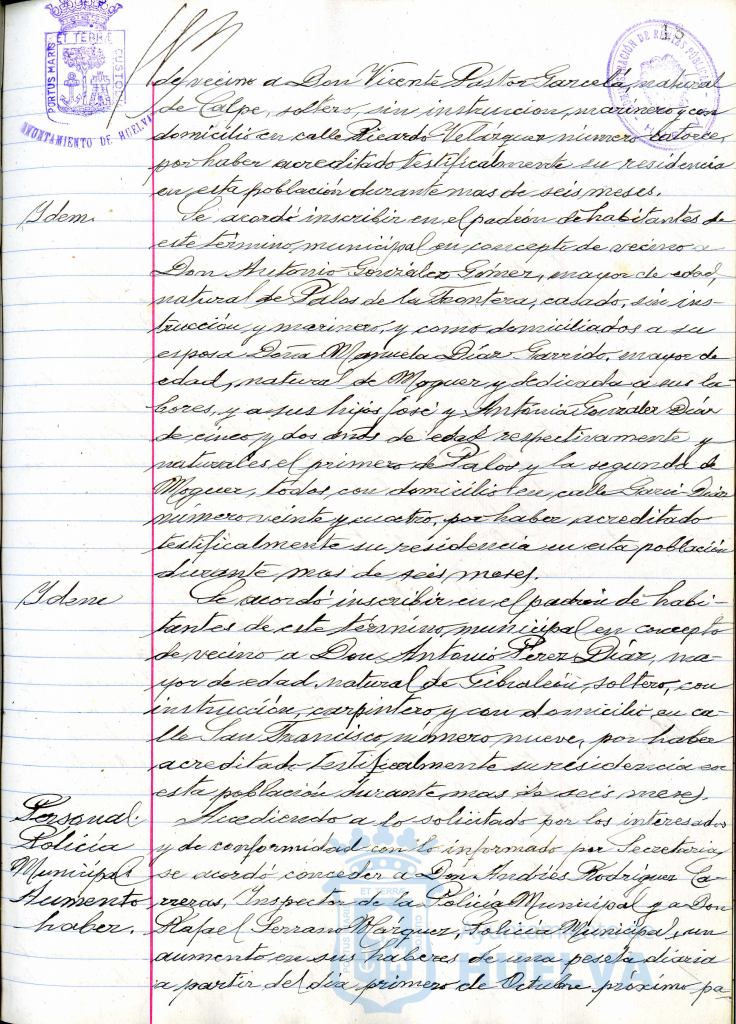 18
PORTUS MARIS ET TERRÆ CUSTODIA
AYUNTAMIENTO DE HUELVA
de vecino a Don Vicente Pastor Garcelá, natural
de Calpe, soltero, sin instrucion, marinero y con
domicilio en calle Ricardo Velazquez número catorce,
por haber acreditado testificalmente su residencia
en esta población durante mas de seis meses.
Idem.
Se acordó inscribir en el padrón de habitantes de
este término municipal en concepto de vecino a
Don Antonio González Gómez, mayor de edad,
natural de Palos de la Frontera, casado, sin ins-
trucción, y marinero, y como domiciliados a su
esposa Doña Manuela Díaz Garrido, mayor de
edad, natural de Moguer y dedicada a sus la-
bores, y a sus hijos José y Antonia González Díaz
de cinco y dos años de edad respectivamente y
naturales el primero de Palos y la segunda de
Moguer, todos con domicilio en calle Garci-Díaz
número veinte y cuatro, por haber acreditado
testificalmente su residencia en esta población
durante mas de seis meses.
Idem
Se acordó inscribir en el padrón de habi-
tantes de este término municipal en concepto
de vecino a Don Antonio Pérez Díaz, ma-
yor de edad, natural de Gibraleón, soltero, con
instrucción, carpintero y con domicilio en ca-
lle San Francisco número nueve, por haber
acreditado testificalmente su residencia en
esta población durante mas de seis meses.
Personal.
Policía
Municipal.
Aumento
haber.
Accediendo a lo solicitado por los interesados
y de conformidad con lo informado por Secretaria,
se acordó conceder a Don Andrés Rodríguez Ca-
rreras, Inspector de la Policía Municipal y a Don
Rafael Serrano Marquez, Policía Municipal, un
aumento en sus haberes de una peseta diaria
a partir del día primero de Octubre próximo pa-
Ayuntamiento de
HUELVA